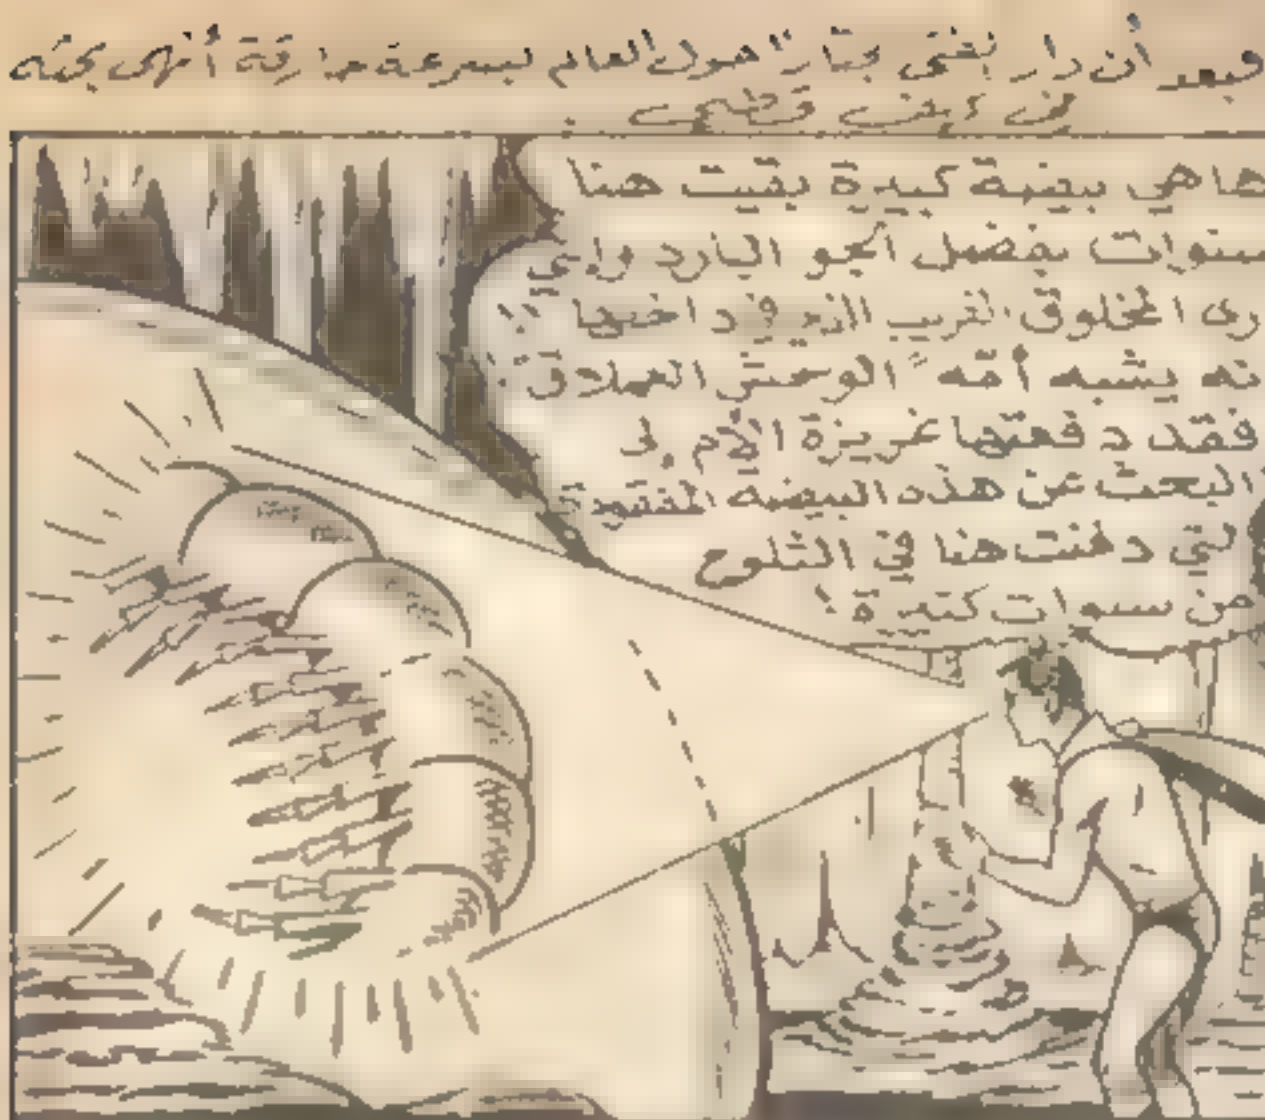 وبعد أن دار الفتى جبّار حول العالم بسرعة خارقة أنهى بحثه
في قطبي
هاهي بيضة كبيرة بقيت هنا
سنوات بفضل الجو البارد وإني
رى المخلوق الغريب الذي في داخلها !!
نه يشبه أمّه " الوحش العملاق"
فقد دفعتها غريزة الأم إلى
البحث عن هذه البيضه المفقودة
لتي دفنت هنا في الثلوج
من سنوات كثيرة !